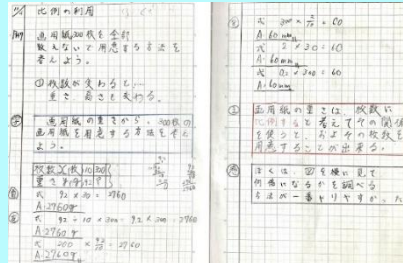 比例の利用
画用紙300枚を全部
数えないで用意する方法を
考えよう。
①枚数が変わると…
重さ 高さも変わる。
画用紙の重さから、300枚の
画用紙を用意する方法を考え
よう。
枚数x(枚) 10 300
重さy(g) 92 ?
式 92×30=2760
A.2760g
式 92÷10×300=9.2×300=2760
A.2760g
式 300×
=2760
A.2760g
=60
A.60mm
式 2×30=60
A.60mm
式 0.2×300=60
A.60mm
画用紙の重さは、枚数に
比例すると考えてその関係
を使うと、およその枚数を
用意することが出来る。
ぼくは、図を横に見て
何倍になるかを調べる
方法が一番やりやすか